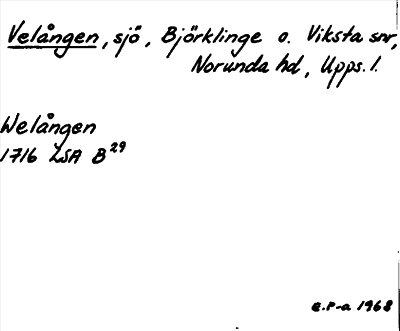 Velången, sjö, Björklinge o. Viksta snr,
Norunda hd, Upps. l.
Welången
1716 LSA B 29
E.P-a 1968